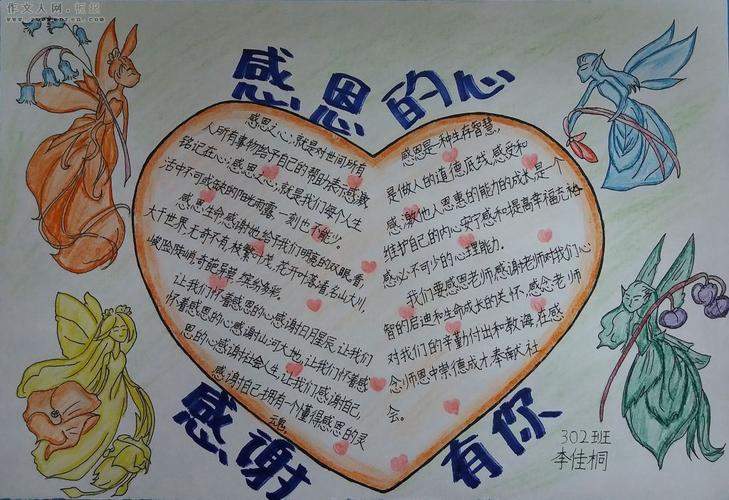 作文人网·恒起
www.zuowenren.com
感恩的心
感恩之心,就是对世间所有
人所有事物给予自己的帮助表示感激,
铭记在心;感恩之心,就是我们每个人生
活中不可或缺的阳光雨露,一刻也不能少。
感恩生命感谢她给予我们明亮的双眼看,
大千世界,无奇不有,枝繁叶茂,花开叶落看名山大川,
峻险陡峭,奇葩异草,缤纷海彩。
让我们怀着感恩的心感谢日月星辰,让我们
怀着感恩的心感谢山河大地,让我们怀着感
恩的心感谢社会人生,让我们感谢自己,
感谢自己拥有个懂得感恩的灵
魂。
感恩是一种生存智慧,
是做人的道德底线,感受和
感激他人恩惠的能力的成长,是个
维护自己的内心安宁感和提高幸福充裕
感必不可少的心理能力。
我们要感恩老师,感谢老师对我们心
智的启迪和生命成长的关怀,感念老师
对我们的辛勤付出和教诲,在感
念师恩中崇德成才奉献社
会。
感谢有你
302班
李佳桐